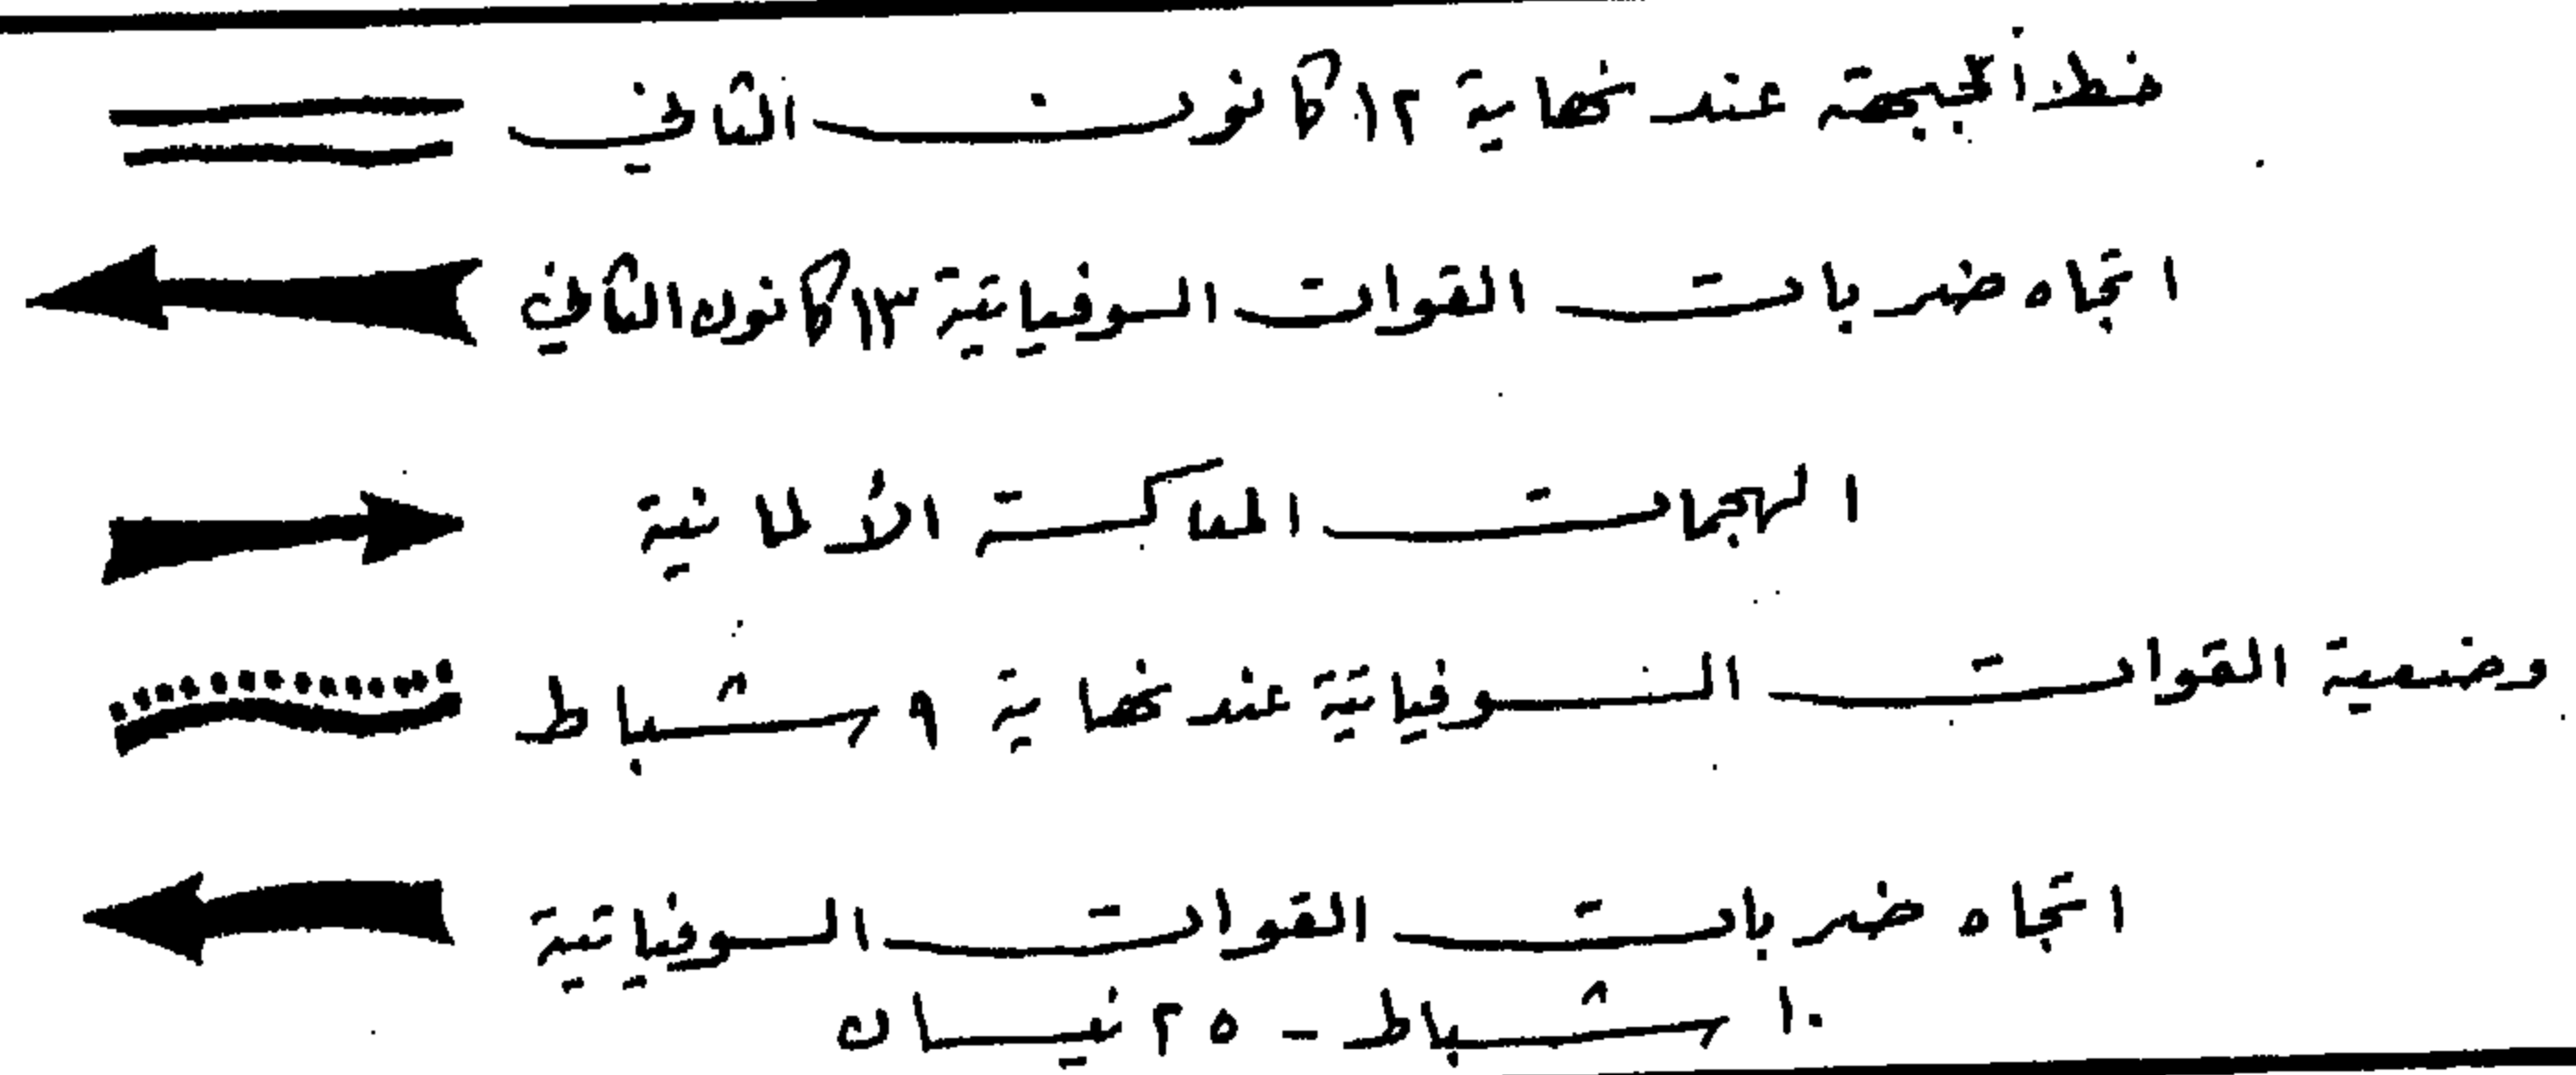 خط الجبهة عند نهاية ١٢ كانون الثاني
اتجاه ضربات القوات السوفياتية ١٣ كانون الثاني
الهجمات المعاكسة الألمانية
وضعية القوات السوفياتية عند نهاية ٩ شباط
اتجاه ضربات القوات السوفياتية
١٠ شباط - ٢٥ نيسان